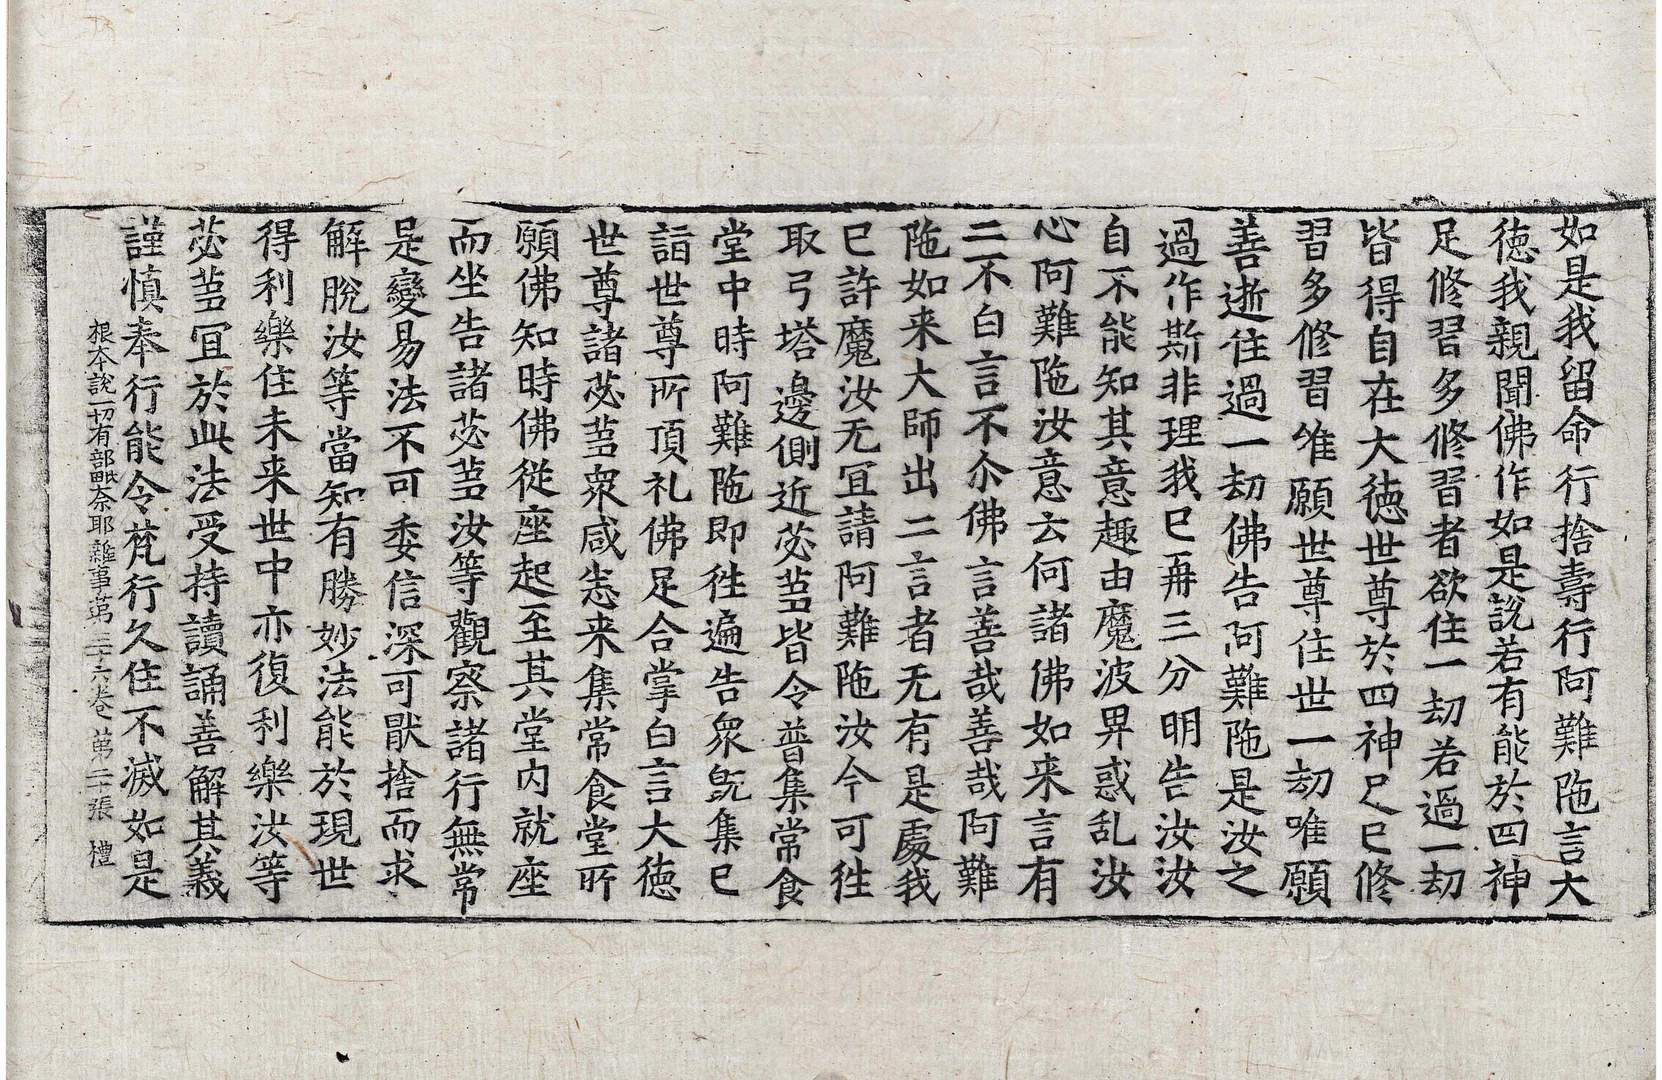 如是我留命行捨壽行阿難陁言大
徳我親聞佛作如是說若有能於四神
足修習多修習者欲住一劫若過一劫
皆得自在大徳世尊於四神足已修
習多修習唯願世尊住世一劫唯願
善逝住過一劫佛告阿難陁是汝之
過作斯非理我已再三分明告汝汝
自不能知其意趣由魔波旬惑乱汝
心阿難陁汝意云何諸佛如来言有
二不白言不尒佛言善哉善哉阿難
陁如来大師出二言者无有是處我
已許魔汝无冝請阿難陁汝今可徃
取弓塔邊側近苾蒭皆令普集常食
堂中時阿難陁即徃遍告衆旣集已
詣世尊所頂礼佛足合掌白言大徳
世尊諸苾蒭衆咸悉来集常食堂所
願佛知時佛從座起至其堂内就座
而坐告諸苾蒭汝等觀察諸行無常
是變易法不可委信深可猒捨而求
解脫汝等當知有勝妙法能於現世
得利樂住未来世中亦復利樂汝等
苾蒭冝於此法受持讀誦善解其義
謹慎奉行能令梵行久住不滅如是
根本說一切有部毗奈耶雜事第三十六卷 第二十張 禮